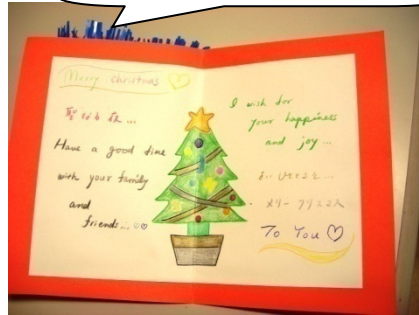 Merry Christmas ♡
Have a good time
with your family
and
friends...
I wish for
your happiness
and joy...
メリー クリスマス
To You ♡